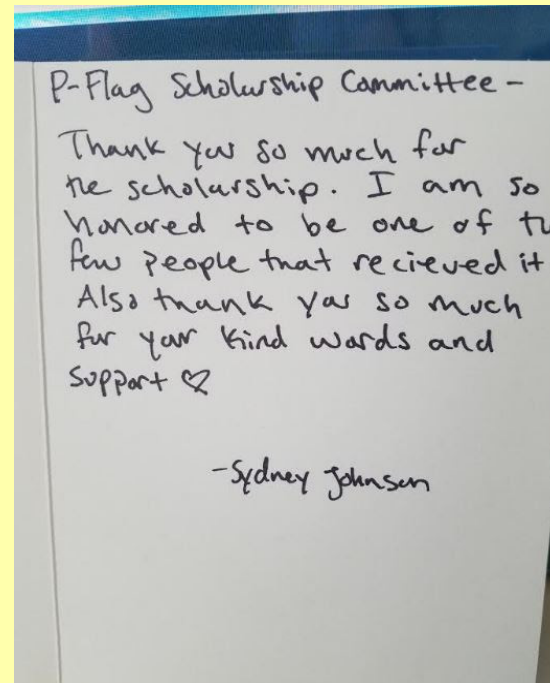 P-Flag Scholarship Committee -
Thank you so much for
the scholarship. I am so
honored to be one of
few people that recieved it
Also thank you so much
for your kind words and
support ♡
-Sydney Johnson